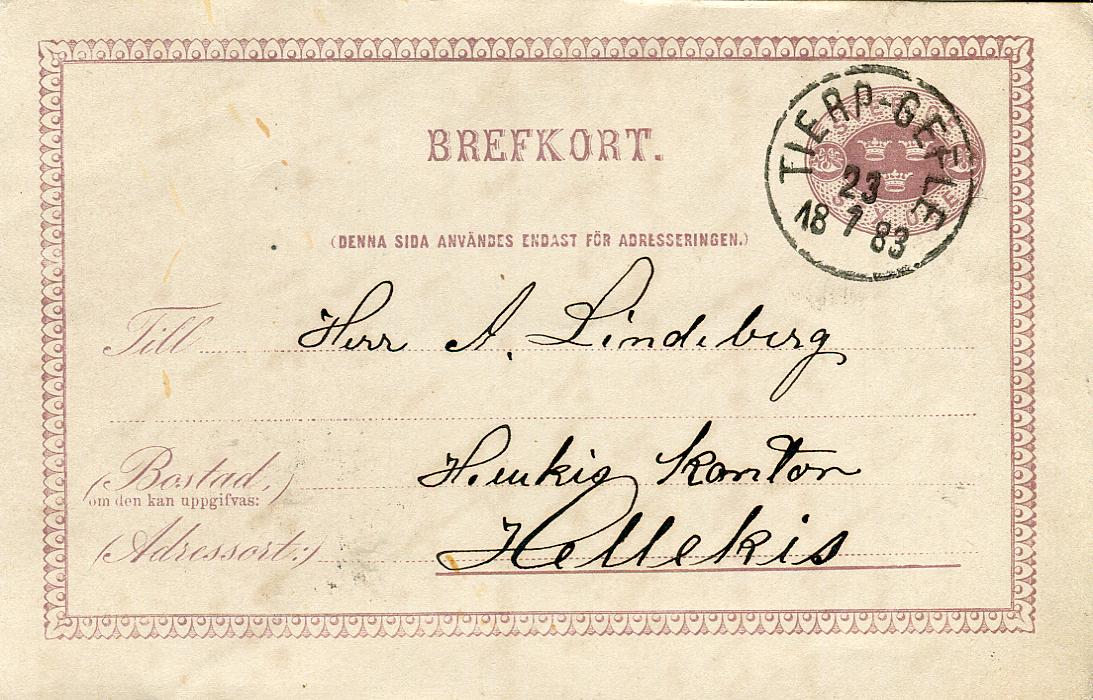 BREFKORT.
TIERP-GEFLE
23
18 7 83
SEX ÖRE
(DENNA SIDA ANVÄNDES ENDAST FÖR ADRESSERINGEN.)
Till Herr A. Lindeberg
(Bostad,)
om den kan uppgifvas:
kontor
(Adressort:) Hellekis